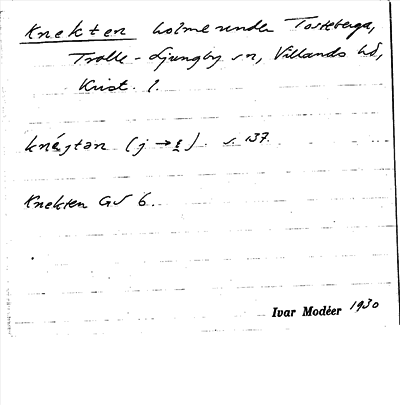 Knekten holme under Tosteberga,
Trolle-Ljungby sn, Villands hd,
Krist. l.
knéjtən (j → ). s. 137.
Knekten GS 6.
Ivar Modéer 1930